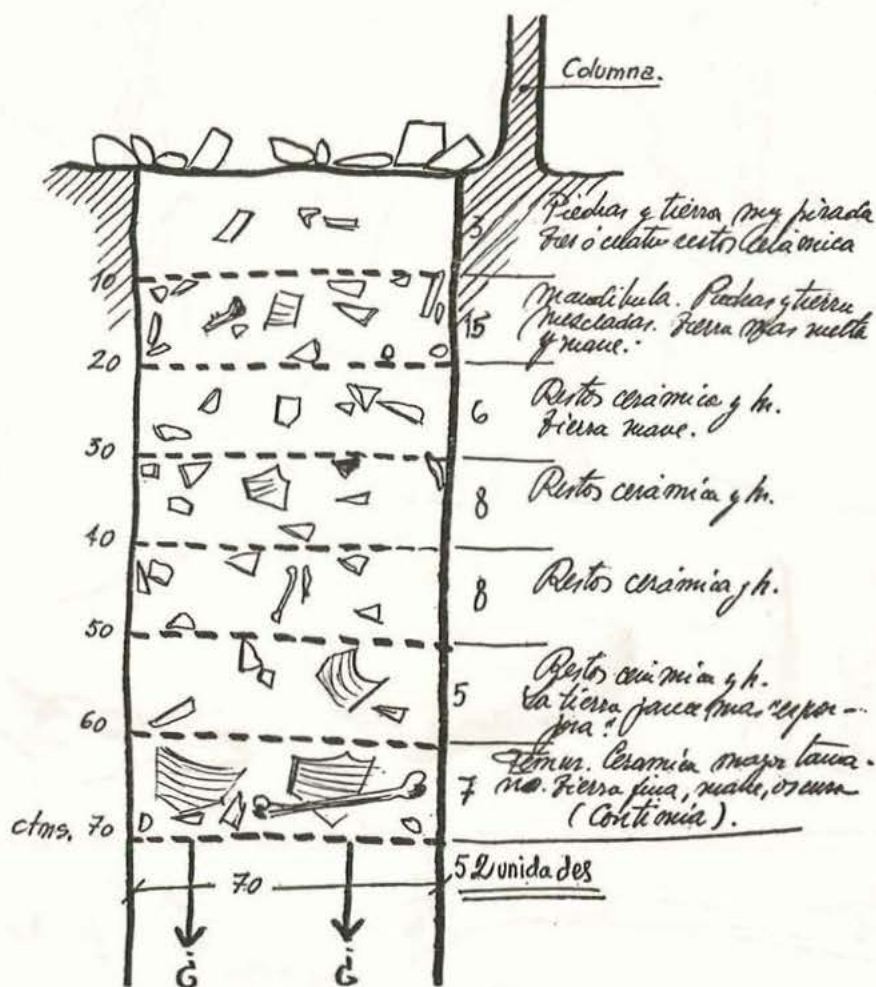 Columna.
3
Piedras y tierra muy pisada
tres ó cuatro restos cerámica
10
15
Mandíbula. Piedras y tierra
mezcladas. Tierra mas suelta
y suave.
20
6
Restos cerámica y h.
Tierra suave.
30
8
Restos cerámica y h.
40
8
Restos cerámica y h.
50
5
Restos cerámica y h.
La tierra parece mas "espon-
josa"
60
7
Fémur. Cerámica mayor tama-
ño. Tierra fina, suave, oscura
(Continúa).
ctms. 70
70
52 unidades
¿ ¿